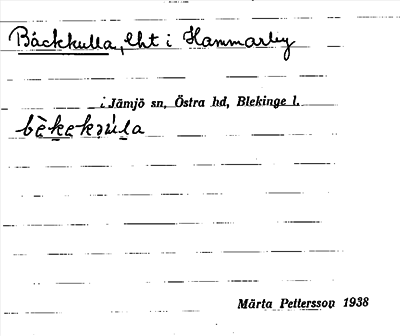 Bäckkulla, lht i Hammarby
i Jämjö sn, Östra hd, Blekinge l.
Märta Pettersson 1938